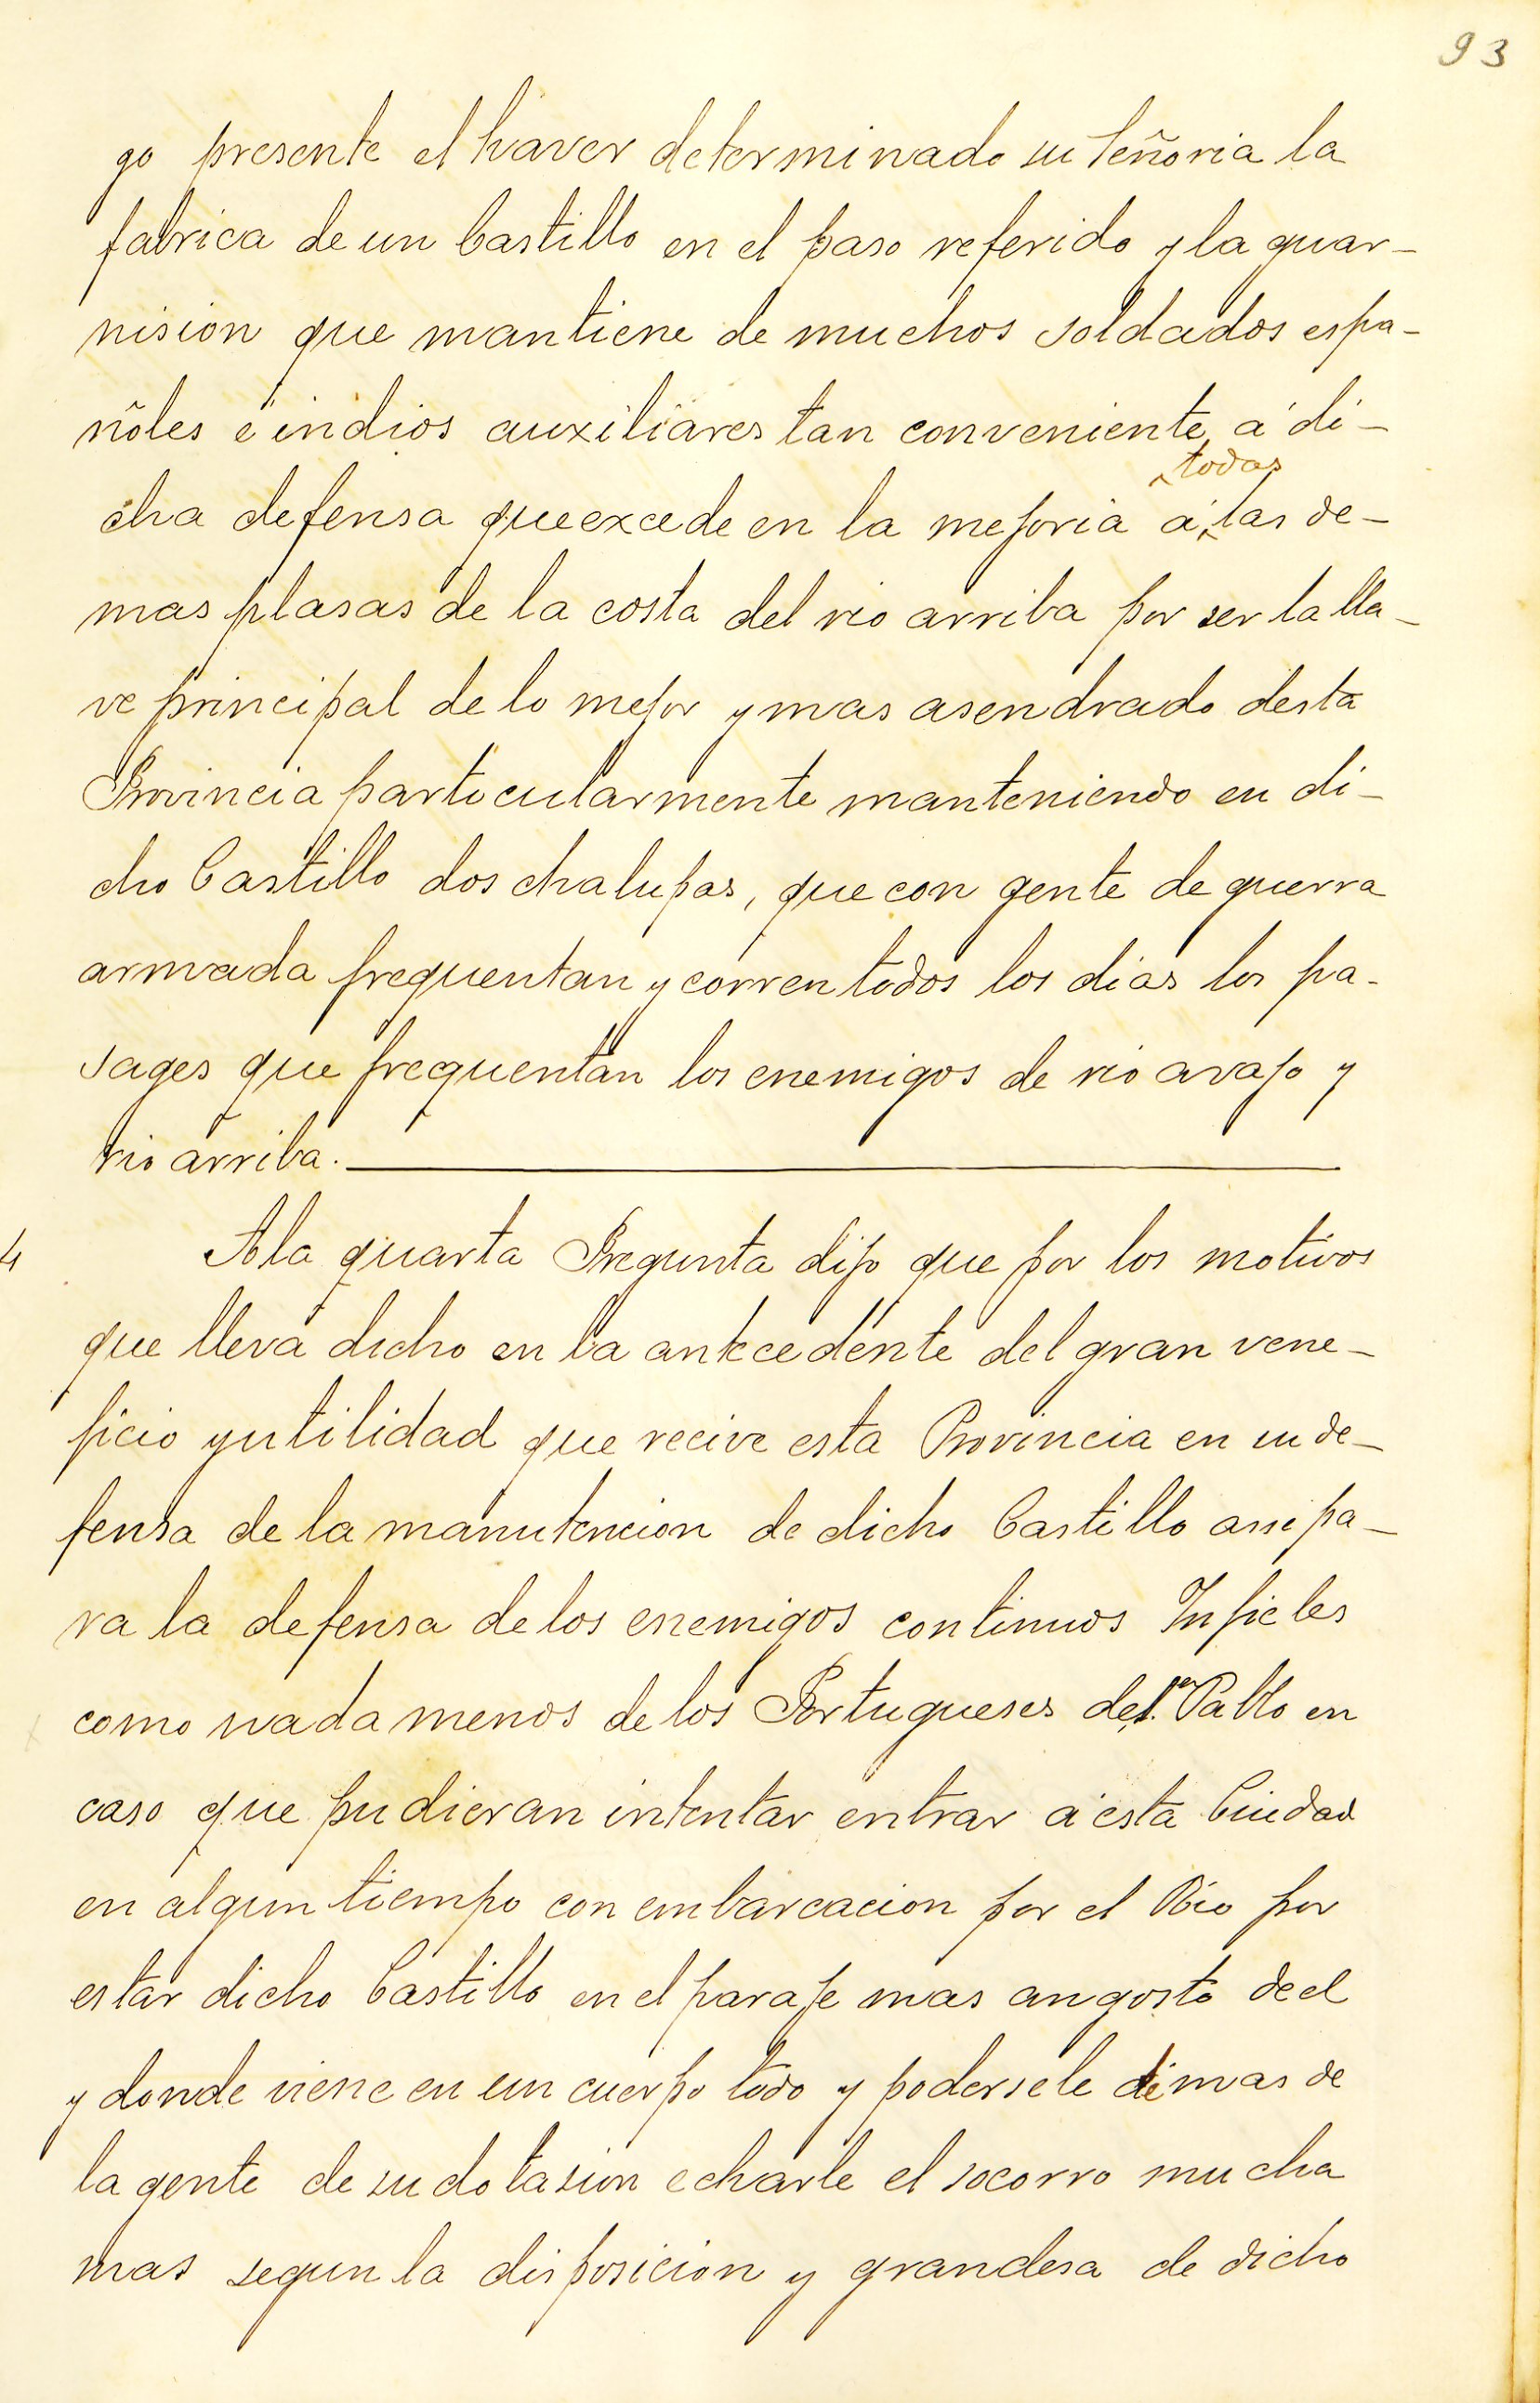 93
go presente el haver determinado su Señoria la
fabrica de un Castillo en el paso referido y la guar-
nision que mantiene de muchos soldados espa-
ñoles é indios auxiliares tan conveniente á di-
todas
cha defensa que excede en la mejoria á las de-
mas plasas de la costa del rio arriba por ser la lla-
ve principal de lo mejor y mas asendrado desta
Provincia particularmente manteniendo en di-
cho Castillo dos chalupas, que con gente de guerra
armada frequentan y corren todos los dias los pa-
sages que frequentan los enemigos de rio avajo y
rio arriba.
4 A la quarta Pregunta dijo que por los motivos
que lleva dicho en la antecedente del gran vene-
ficio y utilidad que recive esta Provincia en su de-
fensa de la manutencion de dicho Castillo assi pa-
ra la defensa de los enemigos continuos Infieles
como nada menos de los Portugueses de Sn. Pablo en
caso que pudieran intentar entrar á esta Ciudad
en algun tiempo con embarcacion por el Rio por
estar dicho Castillo en el paraje mas angosto de el
y donde viene en un cuerpo todo y podersele de mas de
la gente de su dotasion echarle el socorro mucha
mas segun la disposicion y grandesa de dicho